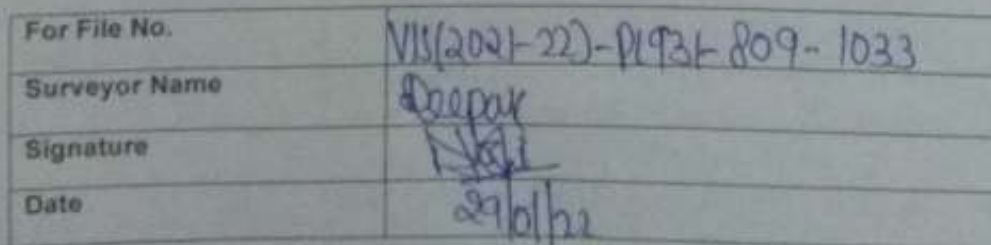 For File No. VIS(2021-22)-PL931-809-1033
Surveyor Name Deepak
Signature
Date 29/01/22